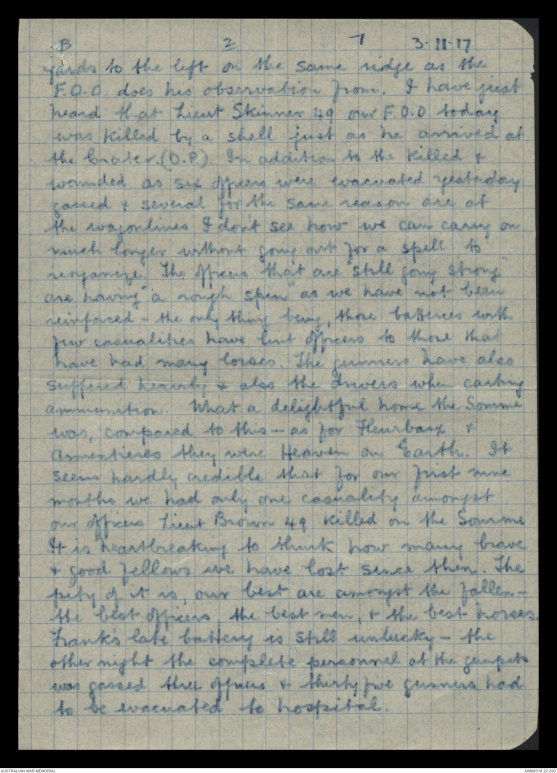 B 2 7 3.11.17
yards to the left on the same ridge as the
F.O.O. does his observation from. I have just
heard that Lieut Skinner 49 our F.O.O. today
was killed by a shell just as he arrived at
the Crater. (O.P). In addition to the killed &
wounded as six officers were evacuated yesterday
gassed & several for the same reason are at
the wagonlines I don't see how we can carry on
much longer without going out for a spell to
reorganize. The officers that are still going strong"
are having "a rough spin" as we have not been
reinforced - the only thing being, those batteries with
few casualities have lent officers to those that
have had many losses. The gunners have also
suffered heavily & also the drivers when carting
ammunition. What a delightful home the Somme
was, compared to this - as for Fleurbaix &
Armentieres they were Heaven on Earth. It
seems hardly credible that for our first nine
months we had only one casuality amongst
our officers Lieut Brown 49 killed on the Somme
It is heartbreaking to think how many brave
& good fellows we have lost since then. The
pity of it is, our best are amongst the fallen -
the best officers, the best men, & the best horses.
Frank's late battery is still unlucky - the
other night the complete personnel at the gunpits
was gassed three officers & thirty five gunners had
to be evacuated to hospital.
AUSTRALIAN WAR MEMORIAL